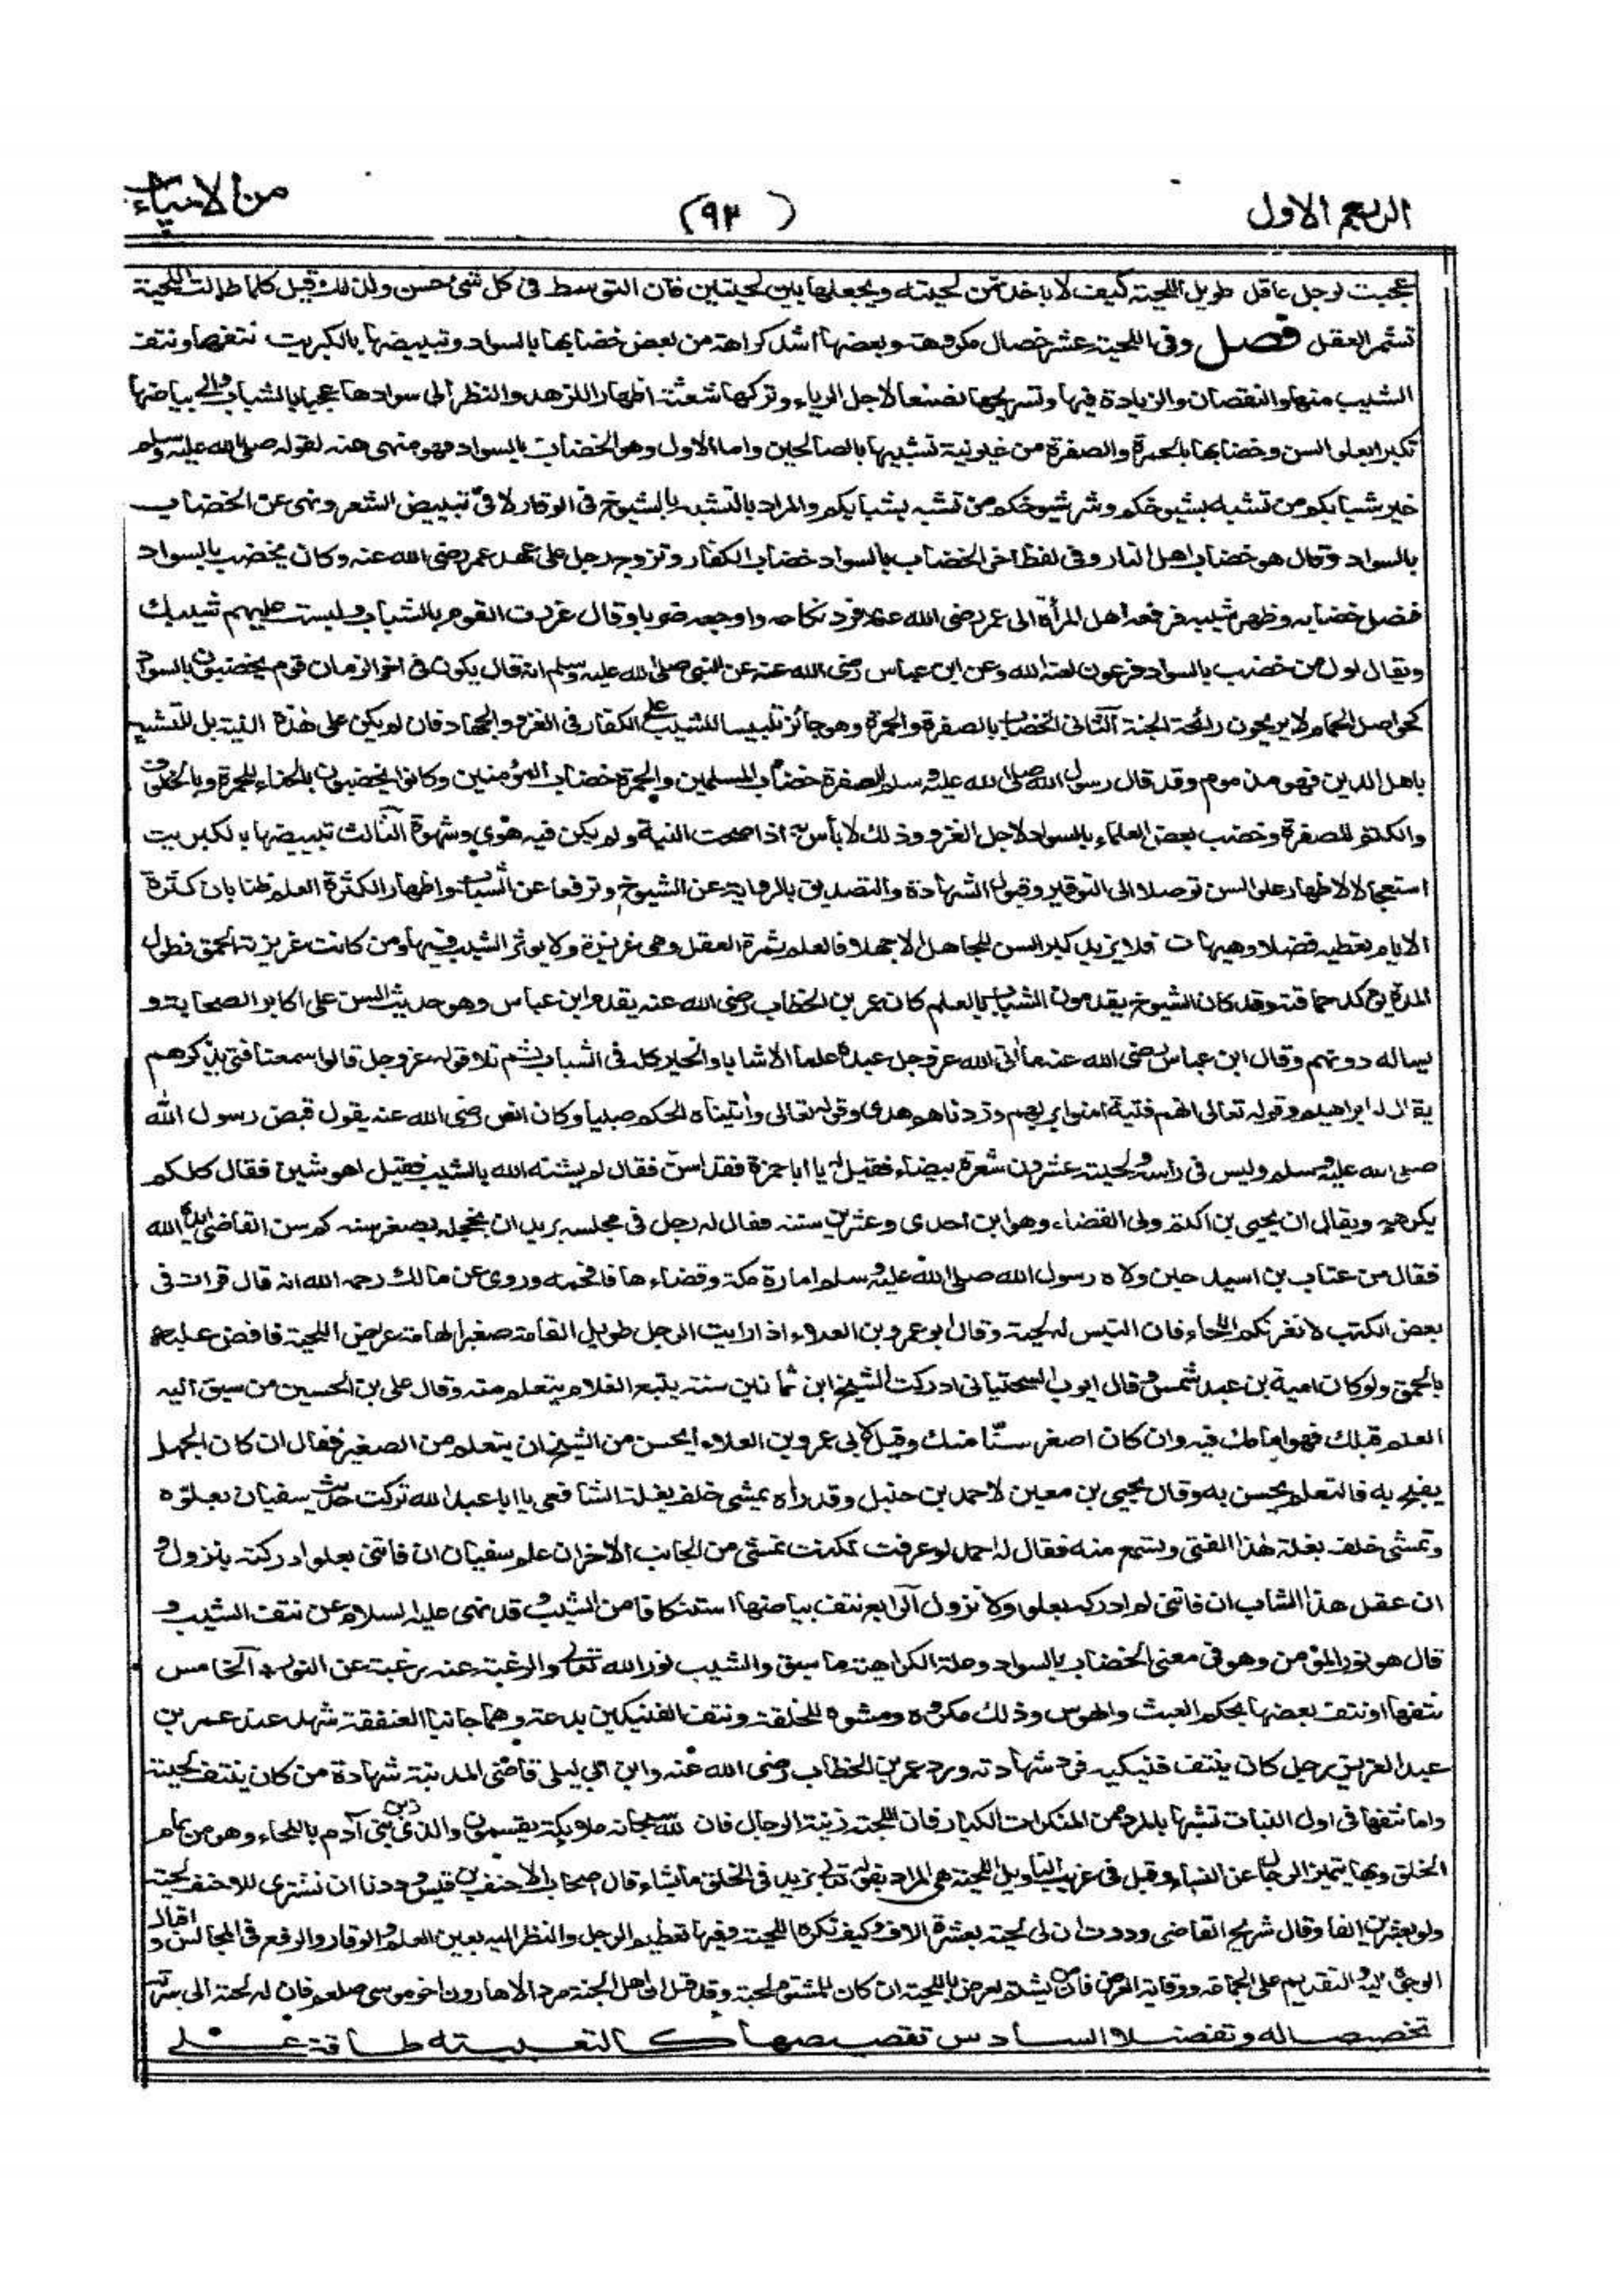 الربع الاول
(٩٣)
من الاحياء
عجبت لرجل عاقل طويل اللحية كيف لا ياخذ من لحيته ويجعلها بين لحيتين فان التوسط في كل شئ حسن ولذلك قيل كلما طالت اللحية
تشمر العقل فصل وفي اللحية عشر خصال مكروهة وبعضها اشد كراهة من بعض خضابها بالسواد وتبييضها بالكبريت نتفها ونتف
الشيب منها والنقصان والزيادة فيها وتسريحها تصنعا لاجل الرياء وتركها شعثة اظهارا للزهد والنظر الى سوادها عجبا بالشباب والى بياضها
تكبرا بعلو السن وخضابها بالحمرة والصفرة من غير نية تشبيها بالصالحين واما الاول وهو الخضاب بالسواد فهو منهى عنه لقوله صلى الله عليه وسلم
خير شبابكم من تشبه بشيوخكم وشر شيوخكم من تشبه بشبابكم والمراد بالتشبه بالشيوخ في الوقار لا في تبييض الشعر ونهى عن الخضاب
بالسواد وقال هو خضاب اهل النار وفي لفظ اخر الخضاب بالسواد خضاب الكفار وتزوج رجل على عهد عمر رضى الله عنه وكان يخضب بالسواد
فنصل خضابه وظهر شيبه فرفعه اهل المرأة الى عمر رضى الله عنه فرد نكاحه واوجعه ضربا وقال غررت القوم بالشباب ولبست عليهم شيبك
ويقال اول من خضب بالسواد فرعون لعنه الله وعن ابن عباس رضى الله عنه عن النبي صلى الله عليه وسلم انه قال يكون في اخر الزمان قوم يخضبون بالسواد
كحواصل الحمام لا يريحون رائحة الجنة الثاني الخضاب بالصفرة والحمرة وهو جائز تلبيسا للشيب على الكفار في الغزو والجهاد فان لم يكن على هذة النية بل للتشبه
باهل الدين فهو مذموم وقد قال رسول الله صلى الله عليه وسلم الصفرة خضاب المسلمين والحمرة خضاب المؤمنين وكانوا يخضبون بالحناء للحمرة وبالخلوق
والكتم للصفرة وخضب بعض العلماء بالسواد لاجل الغزو وذلك لا بأس به اذا صحت النية ولم يكن فيه هوى وشهوة الثالث تبييضها بالكبريت
استعجالا لاظهار علو السن توصلا الى التوقير وقبول الشهادة والتصديق بالرواية عن الشيوخ وترفعا عن الشباب واظهارا لكثرة العلم ظنا بان كثرة
الايام تعطيه فضلا وهيهات فلا يزيد كبر السن للجاهل الا جهلا فالعلم ثمرة العقل وهي غريزة ولا يوثر الشيب فيها ومن كانت غريزته الحمق فطول
المدة يوكد حماقته وقد كان الشيوخ يقدمون الشباب بالعلم كان عمر بن الخطاب رضى الله عنه يقدم ابن عباس وهو حديث السن على اكابر الصحابة و
يساله دونهم وقال ابن عباس رضى الله عنهما ما أتى الله عز وجل عبده علما الا شابا والخير كله في الشباب ثم تلا قوله عز وجل قالوا سمعنا فتى يذكرهم
يقال له ابراهيم وقوله تعالى انهم فتية امنوا بربهم وزدناهم هدى وقوله تعالى وأتيناه الحكم صبيا وكان انس رضى الله عنه يقول قبض رسول الله
صلى الله عليه وسلم وليس في رأسه ولحيته عشرون شعرة بيضاء فقيل له يا ابا حمزة فقد اسن فقال لم يشنه الله بالشيب فقيل اهو شين فقال كلكم
يكرهه ويقال ان يحيى بن اكثم ولى القضاء وهو ابن احدى وعشرين سنة فقال له رجل في مجلسه يريد ان يخجله بصغر سنه كم سن القاضى ايده الله
فقال من عتاب بن اسيد حين ولاه رسول الله صلى الله عليه وسلم امارة مكة وقضاءها فافحمه وروى عن مالك رحمه الله انه قال قرات في
بعض الكتب لا تغرنكم اللحاء فان التيس له لحية وقال ابو عمرو بن العلاء اذا رايت الرجل طويل القامة صغير الهامة عريض اللحية فاقض عليه
بالحمق ولو كان امية بن عبد شمس وقال ايوب السختياني ادركت الشيخ ابن ثمانين سنة يتبع الغلام يتعلم منه وقال على بن الحسين من سبق اليه
العلم قبلك فهو امامك فيه وان كان اصغر سنًّا منك وقيل لابى عمرو بن العلاء أيحسن من الشيخ ان يتعلم من الصغير فقال ان كان الجهل
يقبح به فالتعلم يحسن به وقال يحيى بن معين لاحمد بن حنبل وقد رأه يمشى خلف بغلة الشافعى يا ابا عبد الله تركت حديث سفيان بعلوه
وتمشى خلف بغلة هذا الفتى وتسمع منه فقال له احمد لو عرفت لكنت تمشى من الجانب الاخر ان علم سفيان ان فاتنى بعلو ادركته بنزول و
ان عقل هذا الشاب ان فاتنى لم ادركه بعلو ولا نزول الرابع نتف بياضها استنكافا من الشيب وقد نهى عليه السلام عن نتف الشيب و
قال هو نور المؤمن وهو في معنى الخضاب بالسواد وعلة الكراهية ما سبق والشيب نور الله تعالى والرغبة عنه رغبة عن النور الخامس
نتفها او نتف بعضها بحكم العبث والهوس وذلك مكروه ومشوه للخلقة ونتف الفنيكين بدعة وهما جانبا العنفقة شهد عند عمر بن
عبد العزيز رجل كان ينتف فنيكيه فرد شهادته ورد عمر بن الخطاب رضى الله عنه وابن ابي ليلى قاضى المدينة شهادة من كان ينتف لحيته
واما نتفها في اول النبات تشبها بالمرد فمن المنكرات الكبار فان اللحية زينة الرجال فان لله سبحانه ملايكة يقسمون والذى زين بنى آدم باللحاء وهو من تمام
الخلق وبها يتميز الرجال عن النساء وقيل في غريب التاويل اللحية هى المراد بقوله تعالى يزيد في الخلق ما يشاء قال اصحاب الاحنف بن قيس وددنا ان نشترى للاحنف لحية
ولو بعشرين الفا وقال شريح القاضى وددت ان لى لحية بعشرة الاف وكيف تكره اللحية وفيها تعظيم الرجل والنظر اليه بعين العلم والوقار والرفع في المجالس و اقبال
الوجوه اليه والتقديم على الجماعة ووقاية العرض فان من يشتم يعرض باللحية ان كان للمشتوم لحية وقد قيل ان اهل الجنة مرد الا هارون اخو موسى صلعم فان له لحية الى سرته
تخصيصا له وتفضيلا السادس تقصيصها كالتعبيته طاقة على